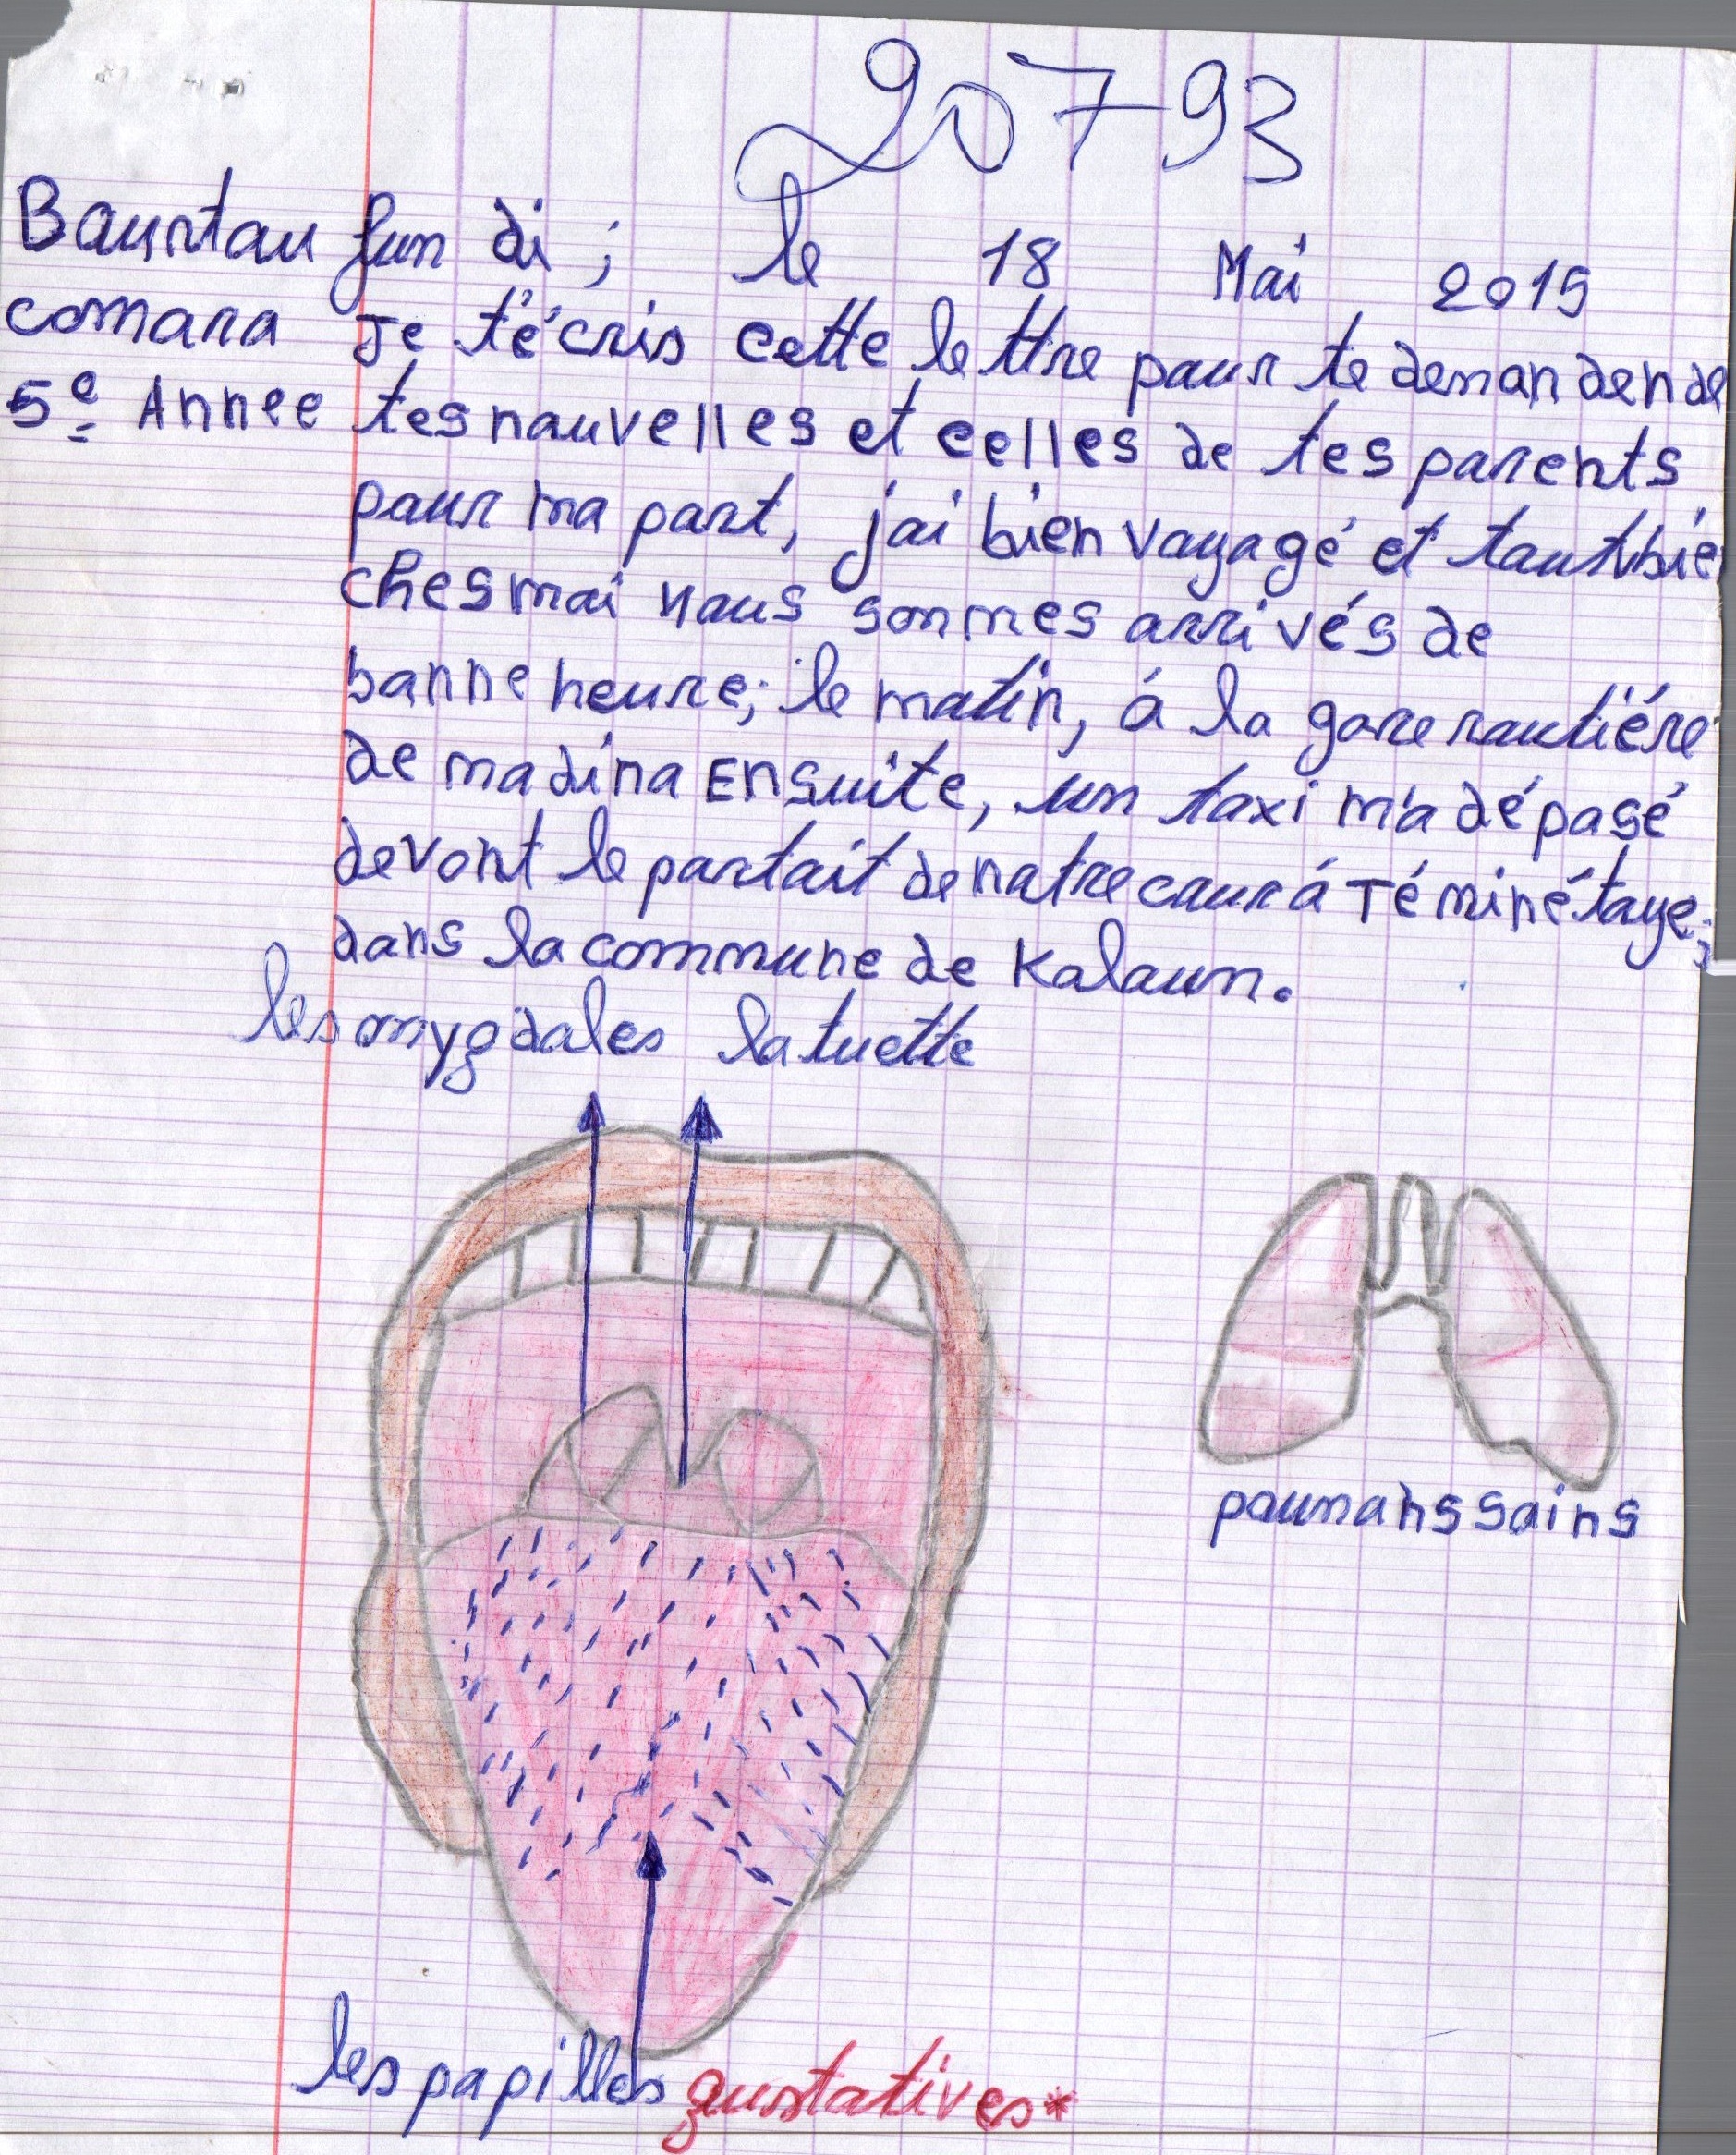 20793
Bourtou
comara
5e Annee
fun di ; le 18 Mai 2015
Je t'écris cette lettre pour te demander de
tes nouvelles et celles de tes parents
pour ma part, j'ai bien voyagé et tout bie
ches moi nous sommes arrivés de
bonne heure; le matin, á la gare routiére
de madina Ensuite, un taxi m'a déposé
devont le portait de notre cour á Téminétaye;
dans la commune de Kaloum.
les omygdales la tuette
poumons sains
les papilles gustatives*